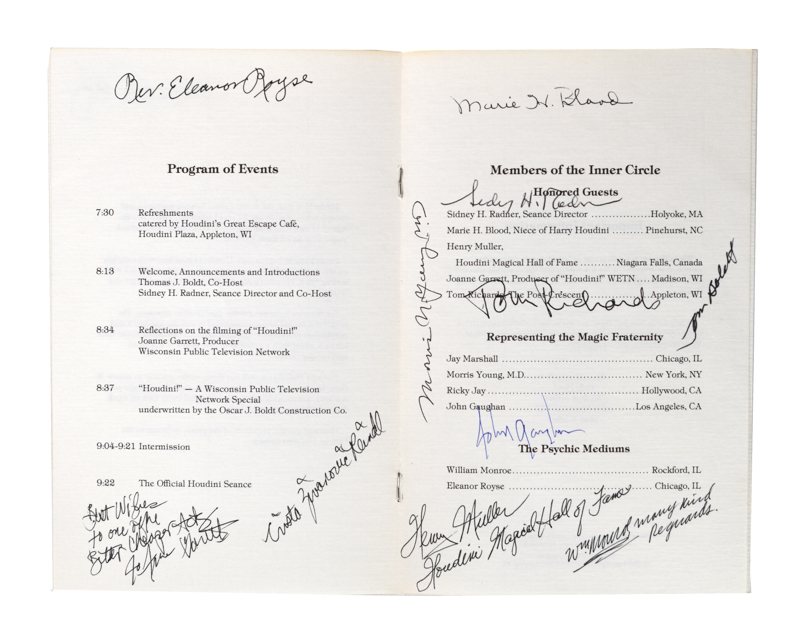 Rev. Eleanor Royse
Program of Events
7:30 Refreshments
catered by Houdini's Great Escape Café,
Houdini Plaza, Appleton, WI
8:13 Welcome, Announcements and Introductions
Thomas J. Boldt, Co-Host
Sidney H. Radner, Seance Director and Co-Host
8:34 Reflections on the filming of "Houdini!"
Joanne Garrett, Producer
Wisconsin Public Television Network
8:37 "Houdini!" — A Wisconsin Public Television
Network Special
underwritten by the Oscar J. Boldt Construction Co.
9:04-9:21 Intermission
9:22 The Official Houdini Seance
Best Wishes
to one of the
to
Marie H. Blood
Members of the Inner Circle
Honored Guests
Sidney H. Radner
Sidney H. Radner, Seance Director ................Holyoke, MA
Marie H. Blood, Niece of Harry Houdini .......... Pinehurst, NC
Henry Muller,
Houdini Magical Hall of Fame .......... Niagara Falls, Canada
Joanne Garrett, Producer of "Houdini!" WETN .... Madison, WI
Tom Richards, The Post-Crescent ................ Appleton, WI
Tom Richards
Tom Boldt
Morris N Young M.D.
Representing the Magic Fraternity
Jay Marshall ........................................ Chicago, IL
Morris Young, M.D. .............................. New York, NY
Ricky Jay ........................................ Hollywood, CA
John Gaughan ................................... Los Angeles, CA
John Gaughan
The Psychic Mediums
William Monroe................................... Rockford, IL
Eleanor Royse ..................................... Chicago, IL
Henry Muller
Houdini Magical Hall of Fame
Wm. Monroe many kind
Reguards.